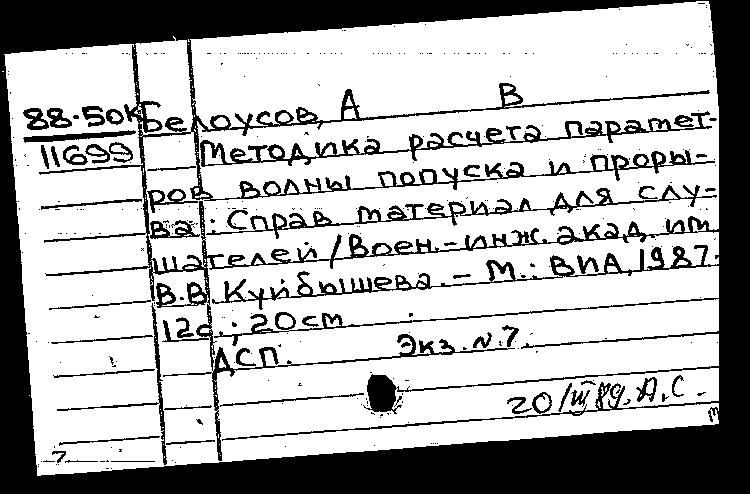 88-50к Белоусов, А В
11699 Методика расчета парамет-
ров волны попуска и проры-
ва: Справ материал для слу-
шателей / Воен.-инж. акад. им
В.В. Куйбышева. – М.: ВИА, 1987.
12с.; 20см.
ДСП. Экз. N 7.
20/III 89. А.С.